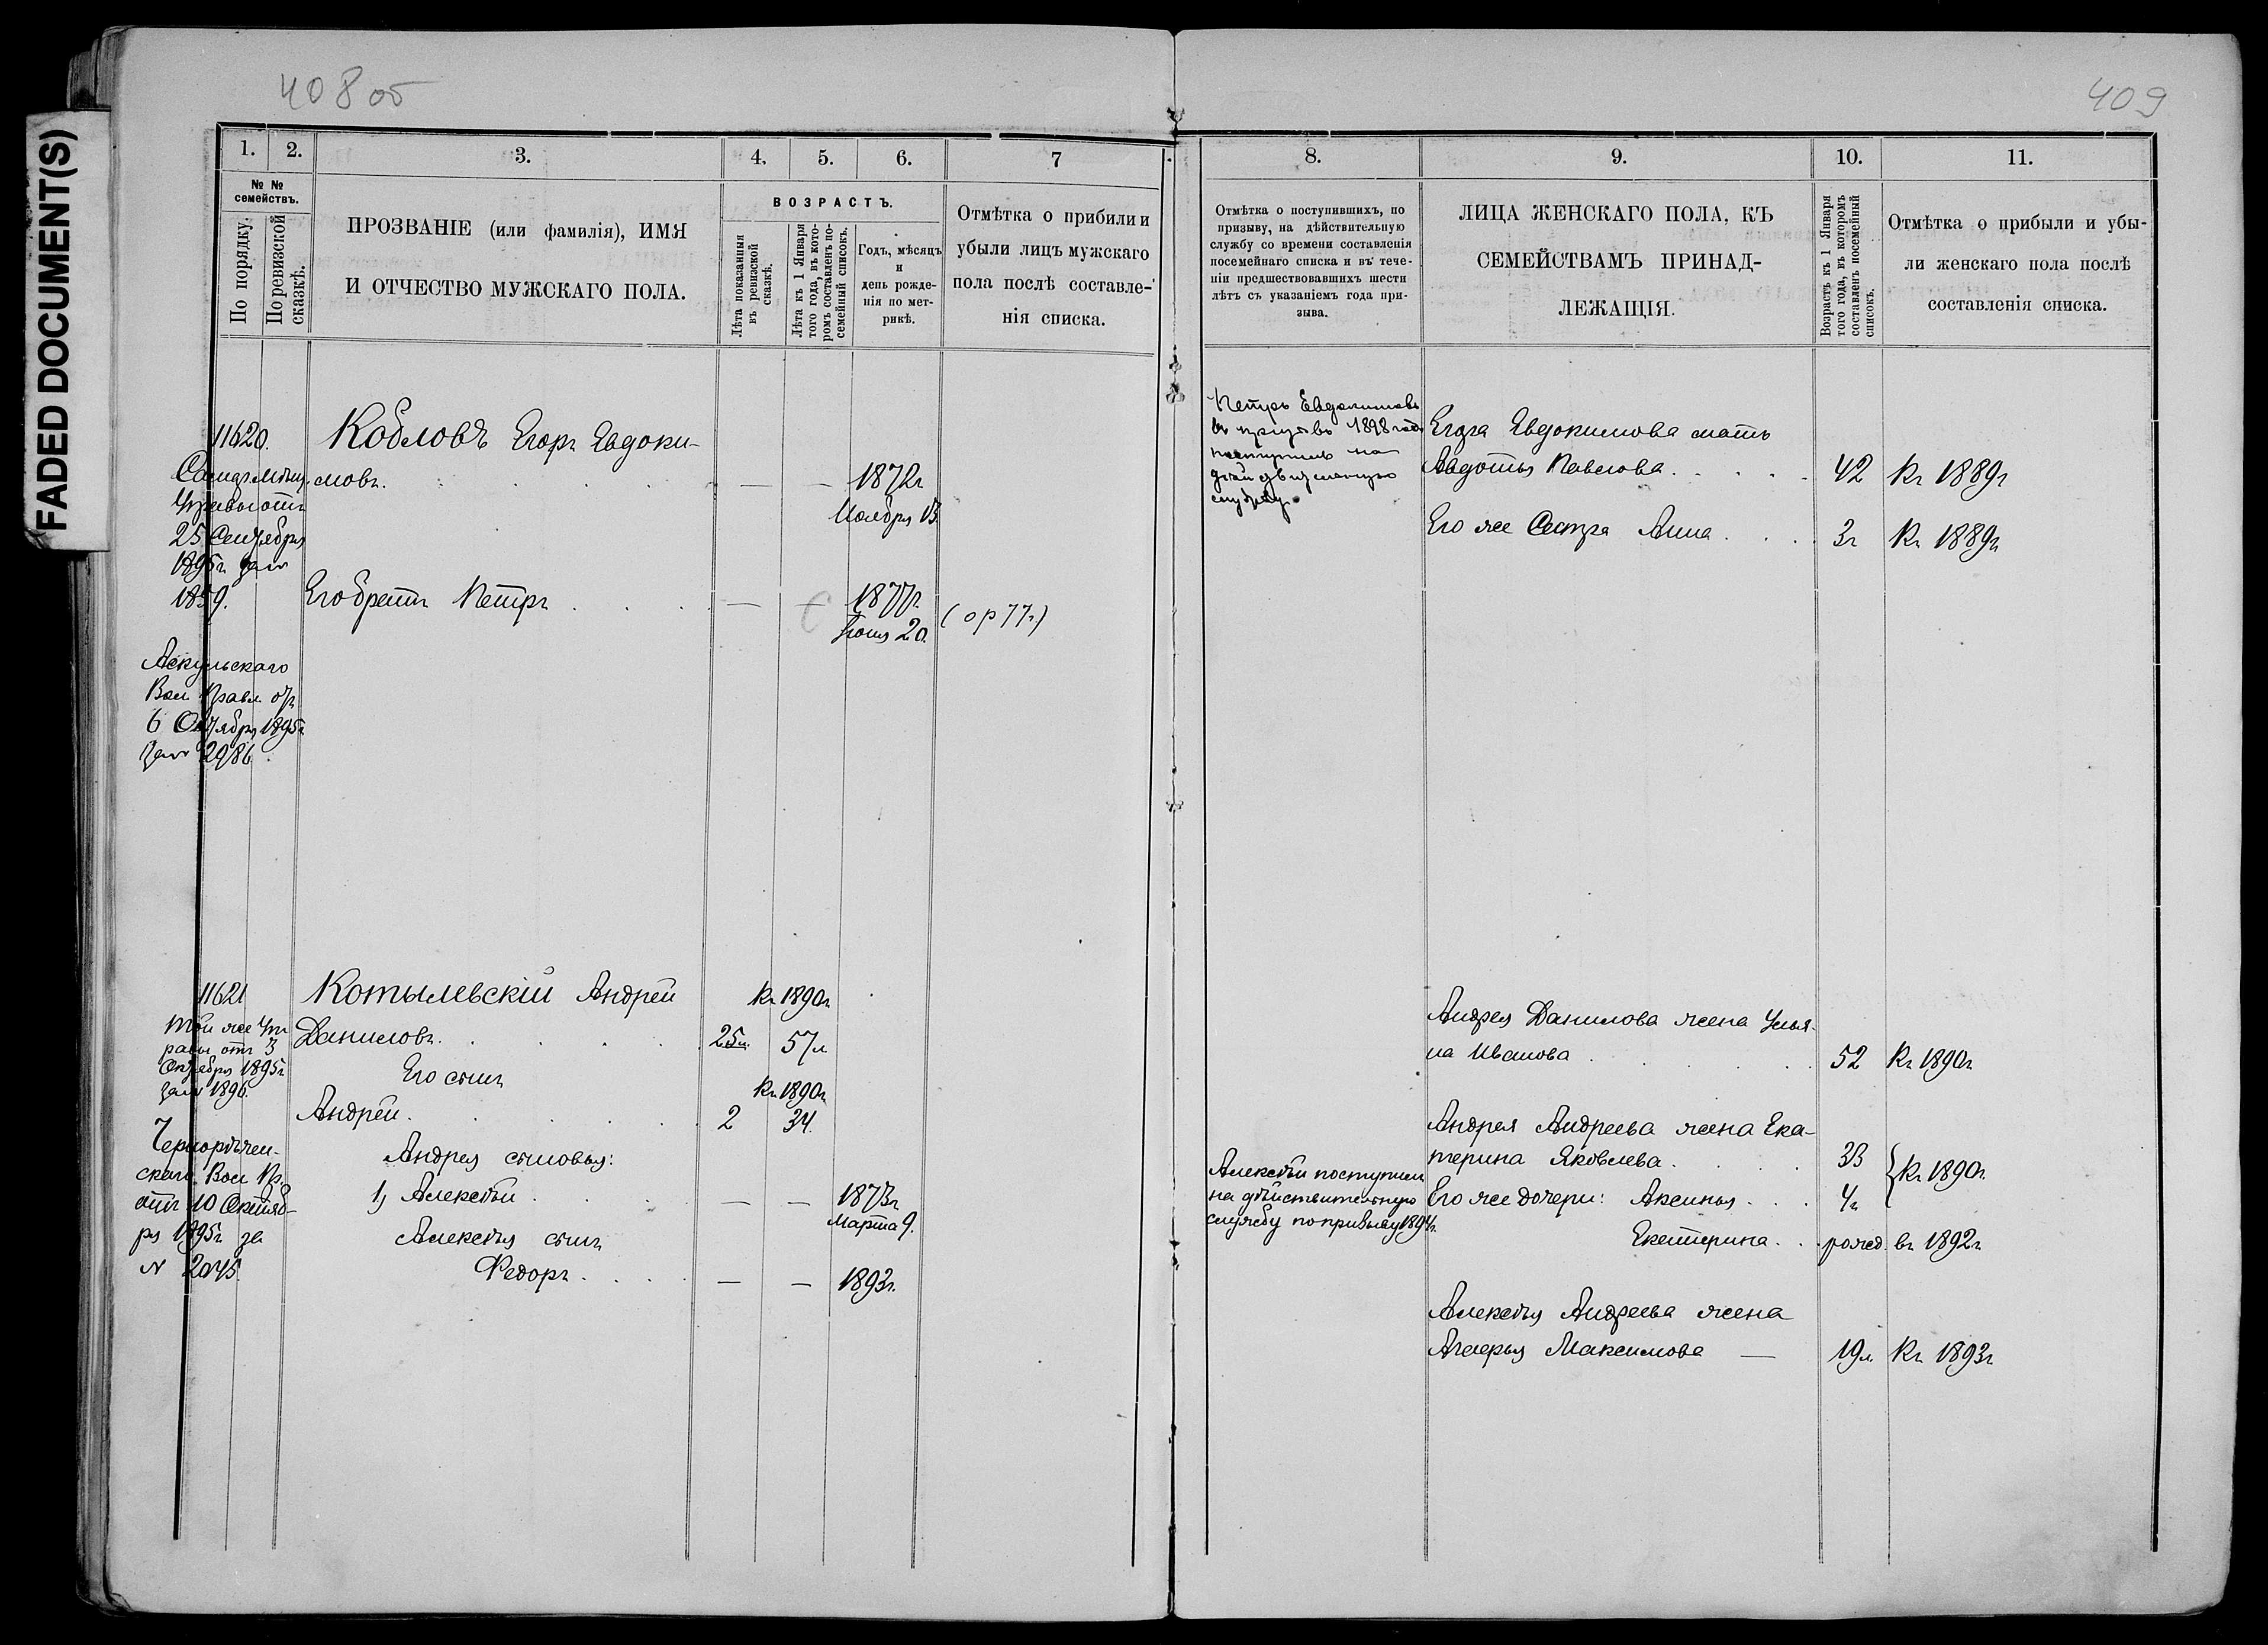 FADED DOCUMENT(S)
408 об
409
1.
2.
3.
4.
5.
6.
7
8.
9.
10.
11.
№ №
семействъ.
По порядку.
По ревизской
сказкѣ.
ПРОЗВАНІЕ (или фамилія), ИМЯ
И ОТЧЕСТВО МУЖСКАГО ПОЛА.
ВОЗРАСТЪ.
Лѣта показанныя
въ ревизской
сказкѣ.
Лѣта къ 1 Января
того года, въ кото-
ромъ составленъ по-
семейный списокъ.
Годъ, мѣсяцъ
и
день рожде-
нія по мет-
рикѣ.
Отмѣтка о прибыли и
убыли лицъ мужскаго
пола послѣ составле-
нія списка.
Отмѣтка о поступившихъ, по
призыву, на дѣйствительную
службу со времени составленія
посемейнаго списка и въ тече-
ніи предшествовавшихъ шести
лѣтъ съ указаніемъ года при-
зыва.
ЛИЦА ЖЕНСКАГО ПОЛА, КЪ
СЕМЕЙСТВАМЪ ПРИНАД-
ЛЕЖАЩІЯ.
Возрастъ къ 1 Января
того года, въ которомъ
составленъ посемейный
списокъ.
Отмѣтка о прибыли и убы-
ли женскаго пола послѣ
составленія списка.
11620.
Самар. мѣщ.
Управы отъ
25 Сентября
1895г за №
1859.
Аскульскаго
Вол. Правл. отъ
6 Октября 1895г
за № 2986.
Кобловъ Егоръ Евдоки-
мовъ.
— — 1872г
Ноября 13
Его братъ Петръ
— — 1877г.
Іюня 20.
(ор 77г.)
Петръ Евдокимовъ
въ призывъ 1898 года
поступилъ на
дѣйствительную
службу.
Егора Евдокимова мать
Авдотья Павлова 42 Къ 1889г
Его же Сестра Анна 3г Къ 1889г
11621
Той же Уп
равы отъ 3
Октября 1895г
за № 1896.
Чернорѣчен-
скаго Вол. Пр.
отъ 10 Октяб-
ря 1895г за
№ 2045.
Котылевскій Андрей
Къ 1890г
Даниловъ. 25л. 57л
Его сынъ
Къ 1890г
Андрей. 2 34
Андрея сыновья:
1, Алексѣй — — 1873г
Марта 9.
Алексѣя сынъ
Федоръ — — 1893г.
Алексѣй поступилъ
на дѣйствительную
службу по призыву 1894г.
Андрея Данилова жена Улья-
на Иванова 52 Къ 1890г
Андрея Андреева жена Ека-
терина Яковлева. 33
Къ 1890г.
Его же дочери: Аксинья 4г
Екатерина рожд. въ 1892г
Алексѣя Андреева жена
Максимова — 19л Къ 1893г